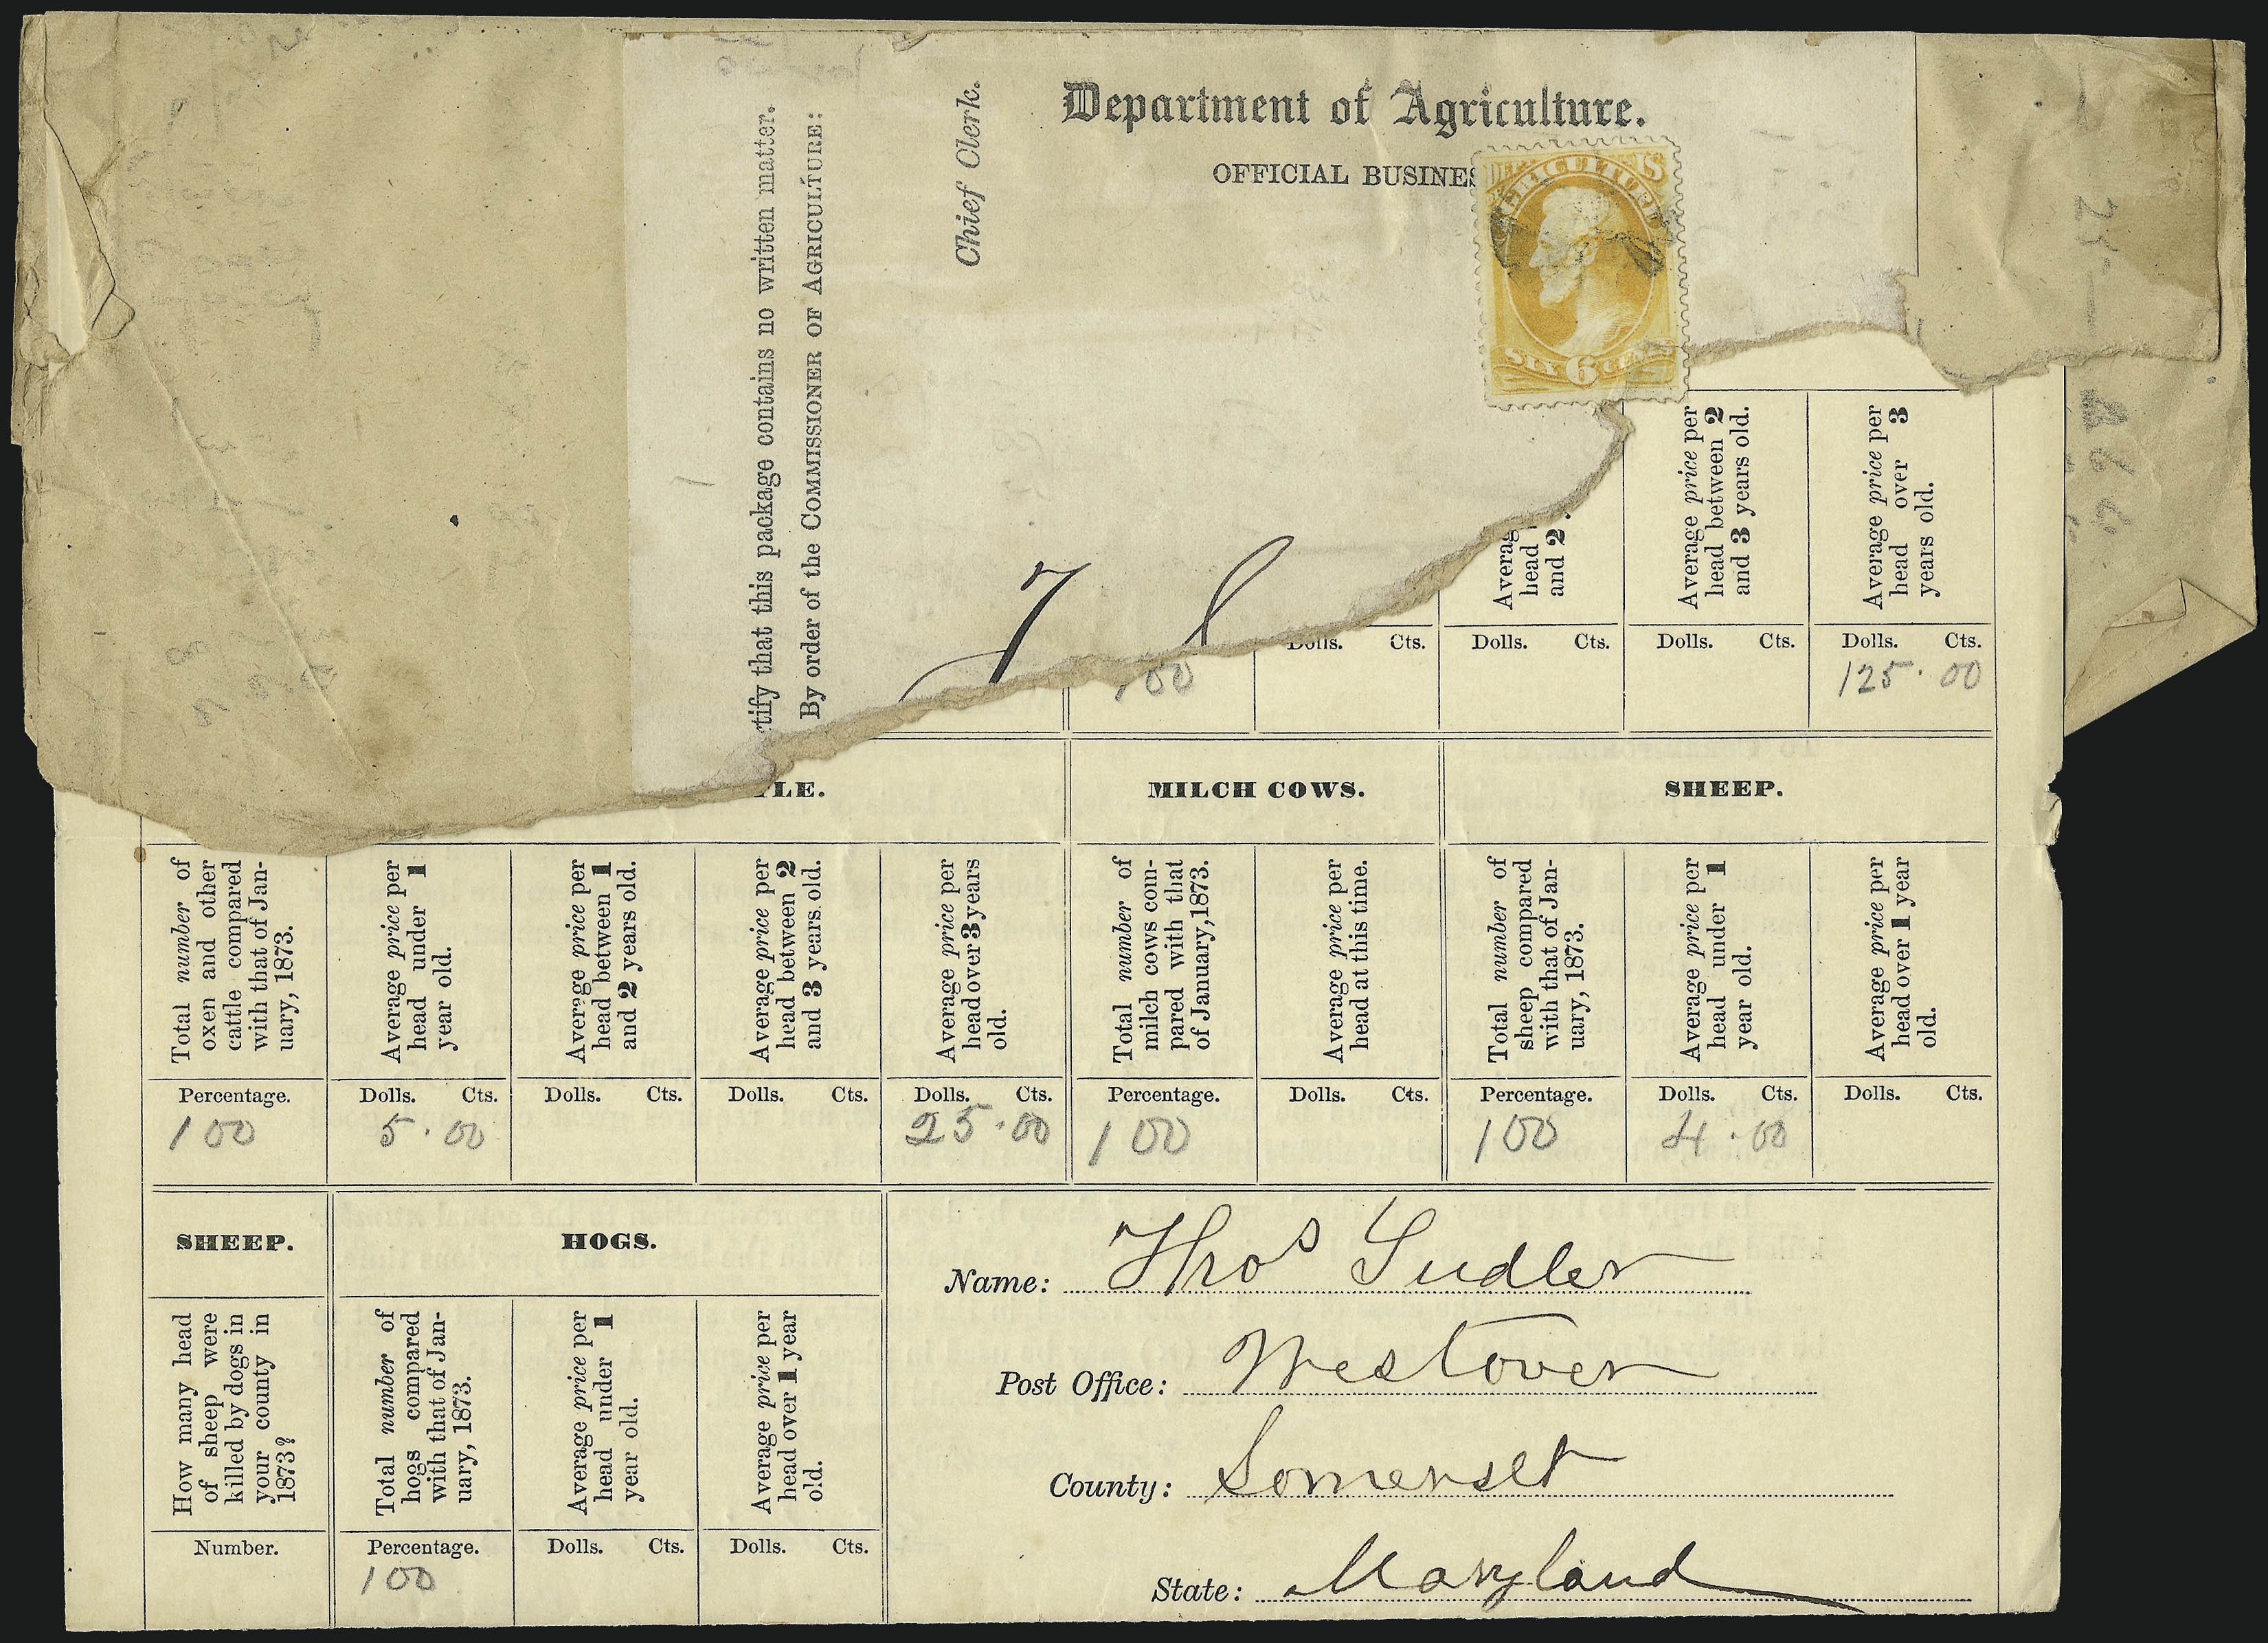 Department of Agriculture.
OFFICIAL BUSINES
AGRICULTURE
SIX 6 CENTS
Chief Clerk.
rtify that this package contains no written matter.
By order of the COMMISSIONER OF AGRICULTURE:
24
Averag
head
and 2
Average price per
head between 2
and 3 years old.
Average price per
head over 3
years old.
Dolls. Cts.
Dolls. Cts.
Dolls. Cts.
Dolls. Cts.
100
125.00
TLE.
MILCH COWS.
SHEEP.
Total number of
oxen and other
cattle compared
with that of Jan-
uary, 1873.
Average price per
head under 1
year old.
Average price per
head between 1
and 2 years old.
Average price per
head between 2
and 3 years old.
Average price per
head over 3 years
old.
Total number of
milch cows com-
pared with that
of January, 1873.
Average price per
head at this time.
Total number of
sheep compared
with that of Jan-
uary, 1873.
Average price per
head under 1
year old.
Average price per
head over 1 year
old.
Percentage.
Dolls. Cts.
Dolls. Cts.
Dolls. Cts.
Dolls. Cts.
Percentage.
Dolls. Cts.
Percentage.
Dolls. Cts.
Dolls. Cts.
100
5.00
25.00
100
100
4.00
SHEEP.
HOGS.
How many head
of sheep were
killed by dogs in
your county in
1873?
Total number of
hogs compared
with that of Jan-
uary, 1873.
Average price per
head under 1
year old.
Average price per
head over 1 year
old.
Number.
Percentage.
Dolls. Cts.
Dolls. Cts.
100
Name: Thos Sudler
Post Office: Westover
County: Somerset
State: Maryland